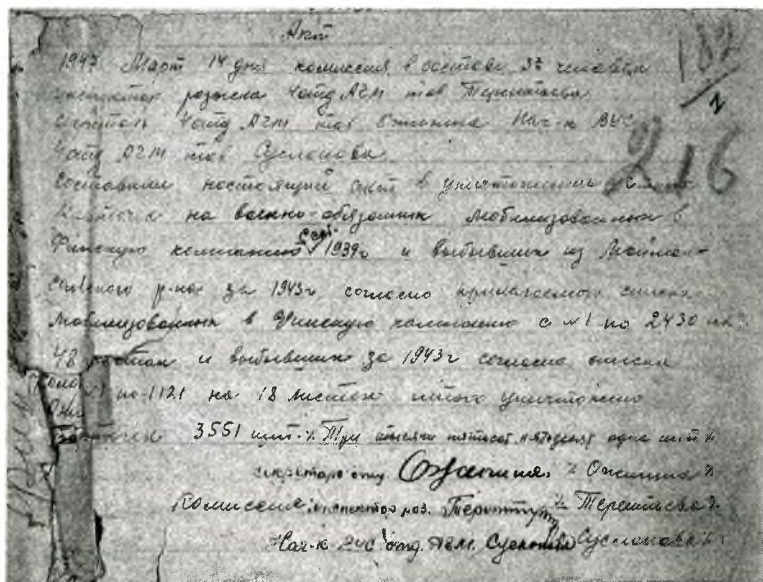 Акт
182
2
1947 Март 14 дня комиссия в составе 3х человек
розыска Чотд АГМ тов Терентьева
Чотд АГМ тов Ожигина Нач-к ВУС
216
Чотд АГМ тов Суслонова
Составили настоящий акт в уничтожении
на военно-обязанных мобилизованных в
Финскую компанию 1939г и выбывших из
р-на за 1943г согласно прилагаемых списка
мобилизованных в Финскую компанию с №1 по 2430 на
48 листах и выбывших за 1943г согласно списка
по-1121 на 18 листах итого уничтожено
3551 шт. Три тысячи пятьсот пятьдесят одна шт
секретарь отд. Ожигина
Комиссия: инспектор роз. Терентьева
Нач-к ВУС отд. АГМ. Суслонова